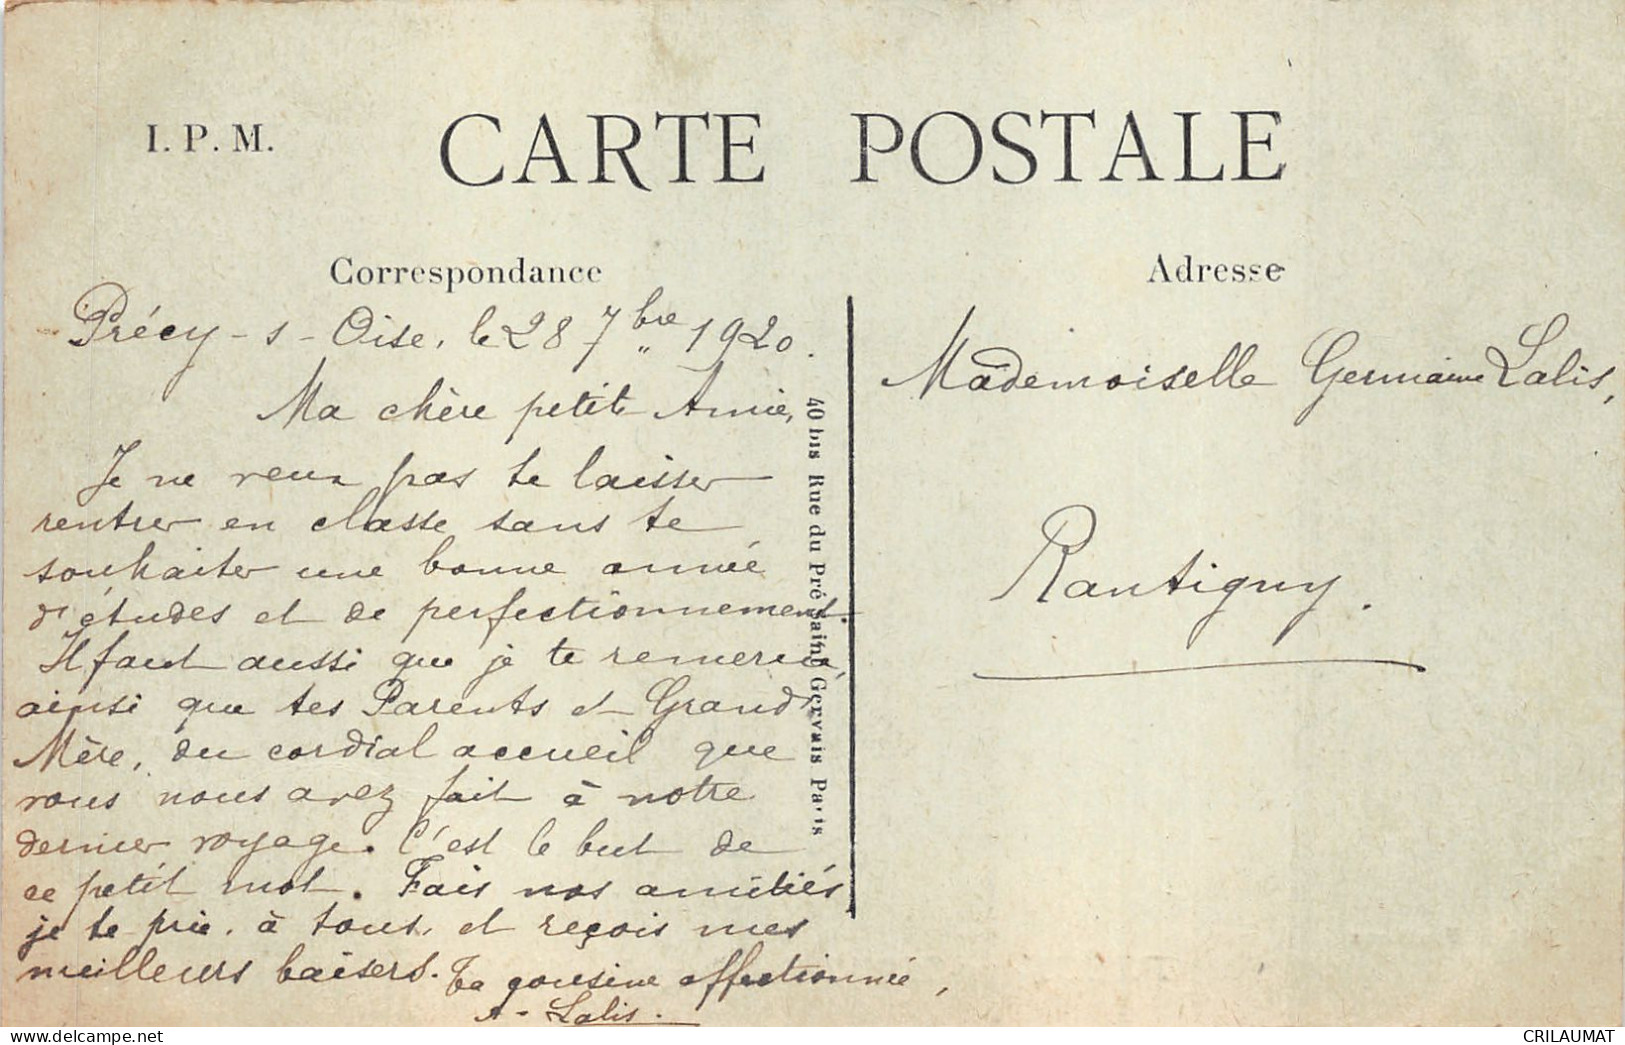 I. P. M.
CARTE POSTALE
Correspondance
Précy-s-Oise, le 28 7bre 1920.
Ma chère petite Amie,
Je ne veux pas te laisser
rentrer en classe sans te
souhaiter une bonne année
d'études et de perfectionnement.
Il faut aussi que je te remercie,
ainsi que tes Parents et Grand'
Mère, du cordial accueil que
vous nous avez fait à notre
dernier voyage. C'est le but de
ce petit mot. Fais nos amitiés
je te prie, à tous, et reçois mes
meilleurs baisers. Ta cousine affectionnée,
A. Lalis.
40 bis Rue du Pré Saint Gervais Paris
Adresse
Mademoiselle Germaine Lalis,
Rantigny.
CRILAUMAT